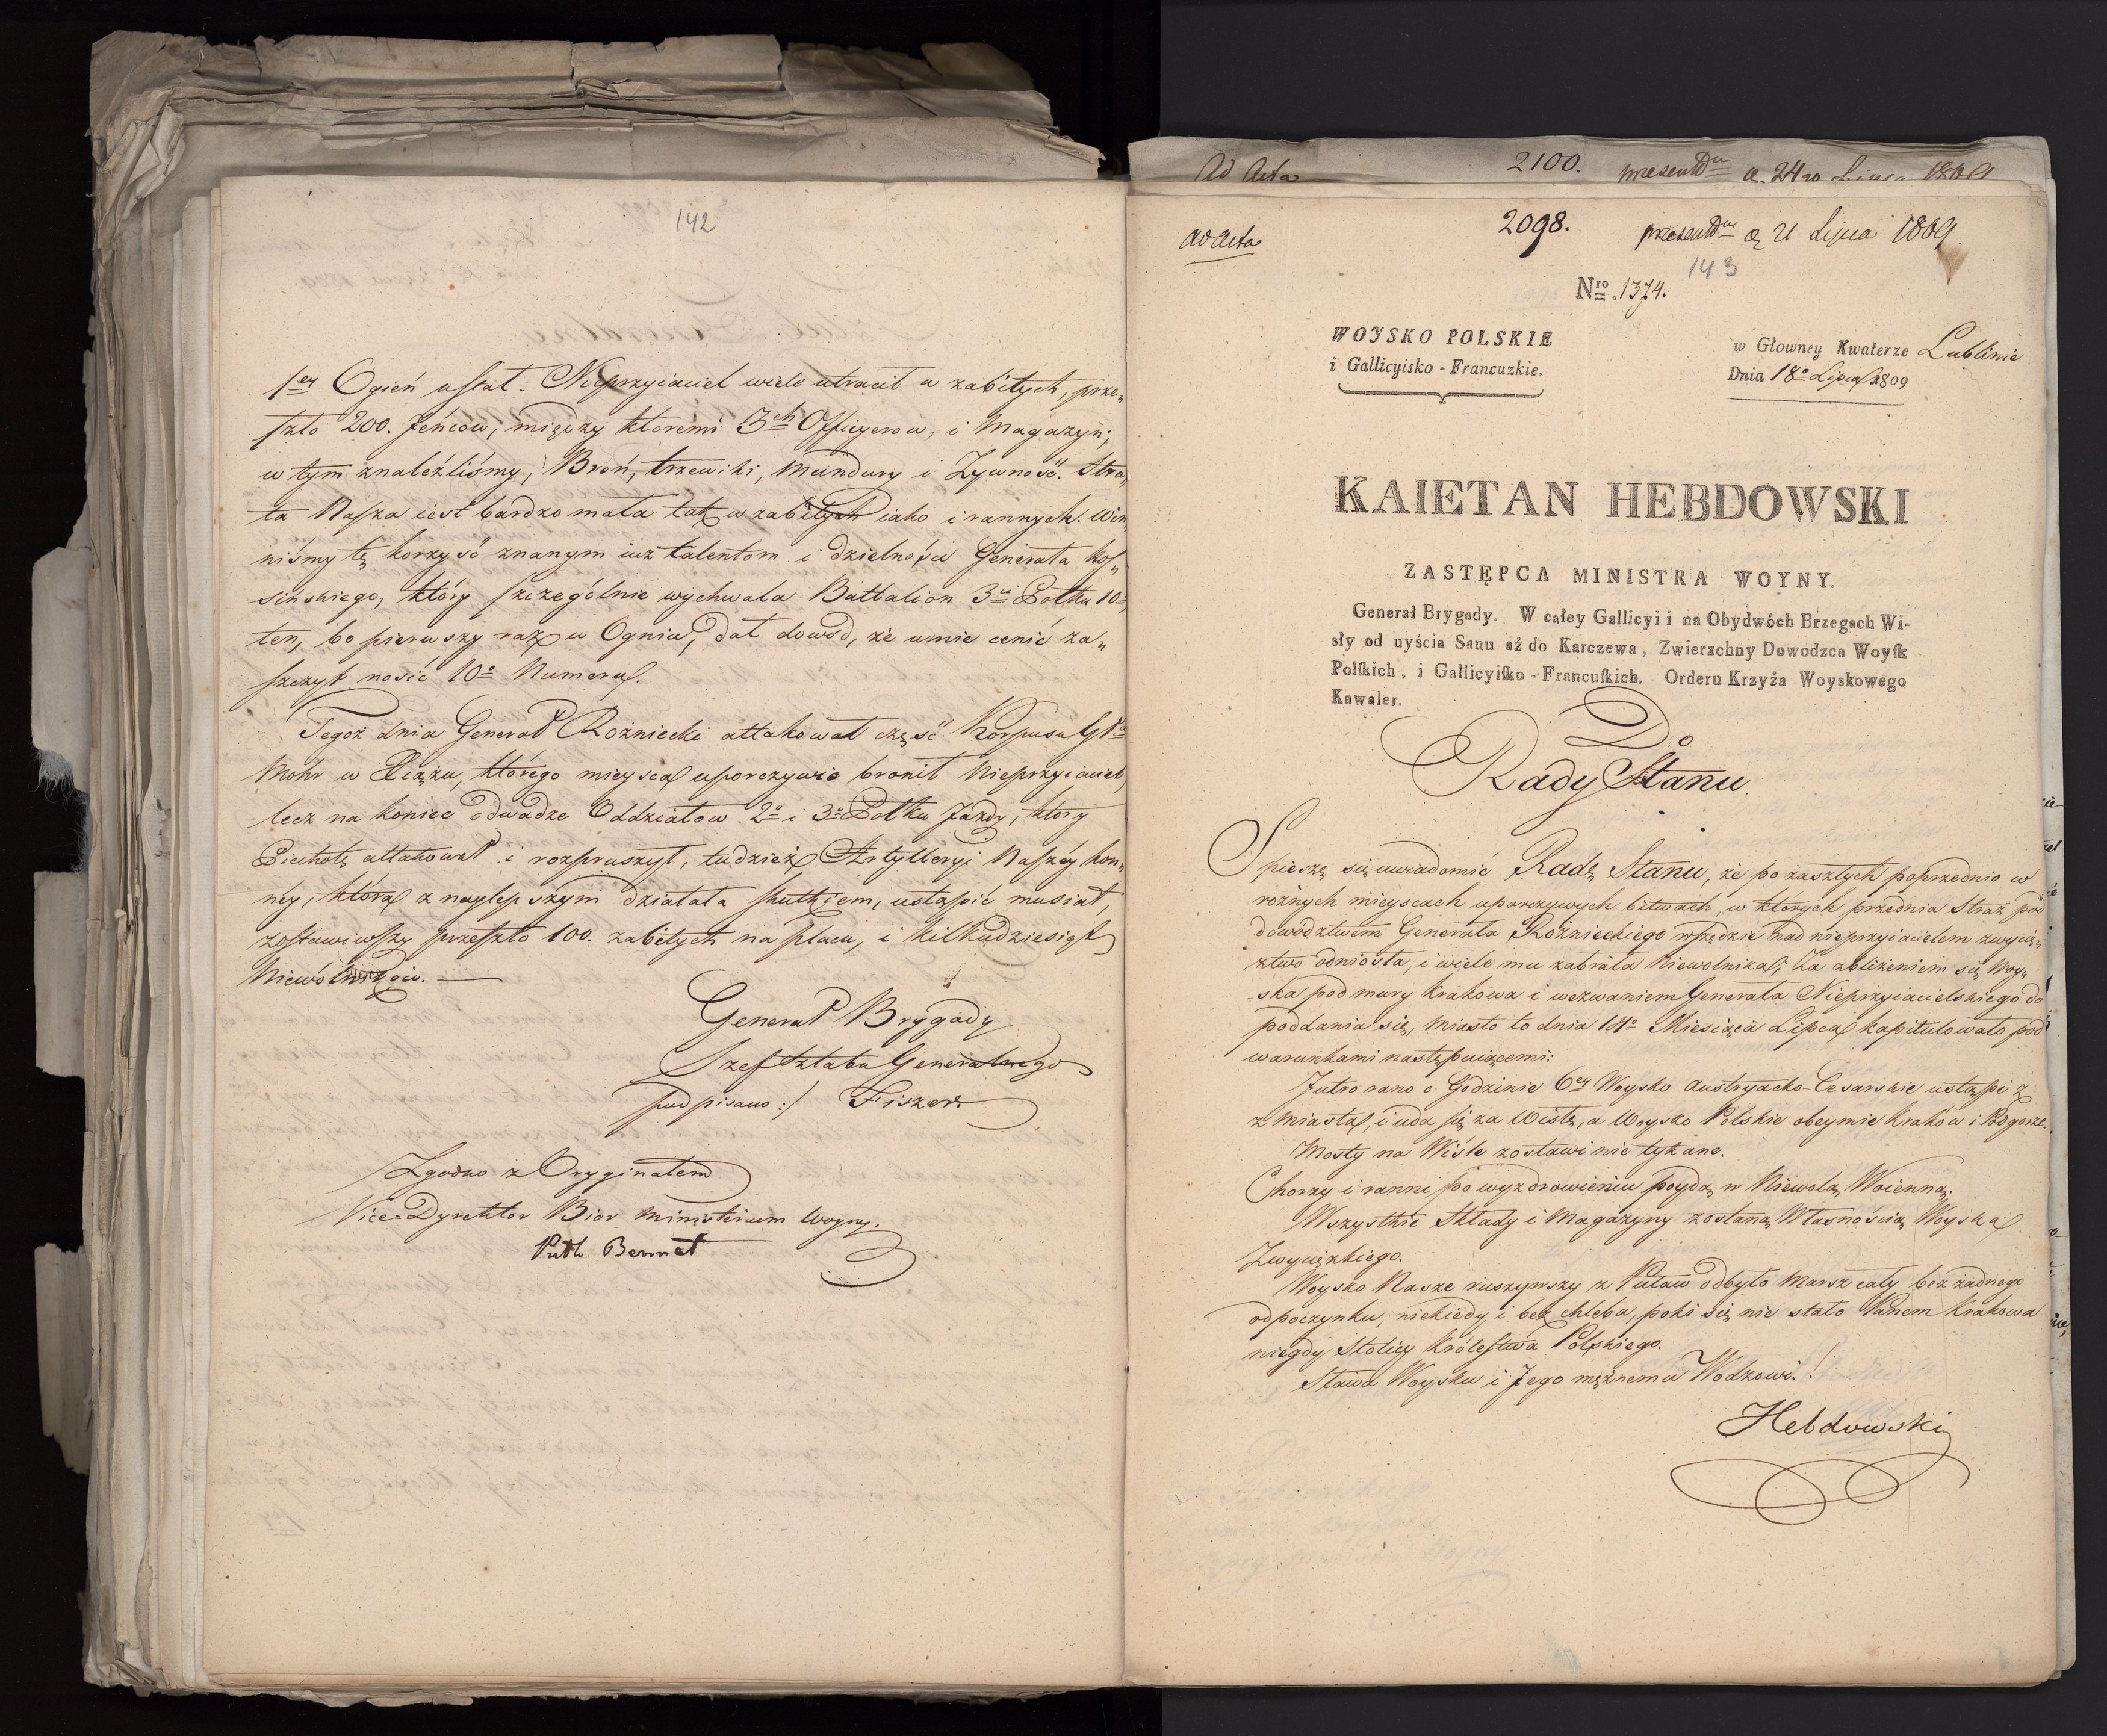 142
1ey Ogień ustał. Nieprzyiaciel wiele utracił w zabitych, prze„
szło 200. Jeńców, między któremi 3ch Officyerow, i Magazyn;
w tym znaleźliśmy, Broń, trzewiki, Mundury i Zywność. Stra„
ta Nasza iest bardzo mała tak w zabitych iako i rannych. Win„
niśmy tę korzyść znanym iuż talentom i dzielności Generała Kos„
sinskiego, który szczególnie wychwala Battalion 3ci Połku 10o,
ten, bo pierwszy raz w Ogniu, dał dowod, że umie cenić za„
szczyt nosić 10o Numera.
Tegoż dnia Generał Rożniecki attakował część Korpusu Gła
Mohr w Xiążu, którego mieysca uporczywie bronił Nieprzyiaciel,
lecz na koniec odwadze Oddziałow 2o i 3o Połku Jazdy, który
Piechotę attakował i rozpruszył, tudzież Artylleryi Naszéy kon„
néy, która z naylepszym działała skutkiem, ustąpić musiał,
zostawiwszy przeszło 100. zabitych na placu, i kilkudziesiąt
Niewolników. —
Generał Brygady
Szef Sztabu Generalnego
podpisano :/ Fiszer.
Zgodno z Oryginałem
Vice-Dyrektor Biór Ministerium Woyny.
Pułk Bennet
Ad Acta 2100. presentDm d. 24go Lipca 1809
ad Acta 2098. presentDm d 21 Lipca 1809
143
Nro. 1374.
WOYSKO POLSKIE
i Gallicyisko - Francuzkie.
w Głowney Kwaterze Lublinie
Dnia 18o Lipca 1809
KAIETAN HEBDOWSKI
ZASTĘPCA MINISTRA WOYNY.
Generał Brygady. W całey Gallicyi i na Obydwóch Brzegach Wi-
sły od uyścia Sanu aż do Karczewa, Zwierzchny Dowodzca Woysk
Polskich, i Gallicyisko - Francuskich. Orderu Krzyża Woyskowego
Kawaler.
Do
Rady Stanu
Spieszę się uwiadomić Radę Stanu, że po zaszłych poprzednio w
rożnych mieyscach uporczywych bitwach, w których przednia Straż pod
dowodztwem Generała Rożnieckiego wszędzie nad nieprzyiacielem zwycię„
ztwo odniosła, i wiele mu zabrała Niewolnika; Za zbliżeniem się Woy„
ska pod mury Krakowa i wezwaniem Generała Nieprzyiacielskiego do
poddania się, Miasto to dnia 14o Miesiąca Lipca kapitulowało pod
warunkami następuiącemi:
Jutro rano o Godzinie 6ey Woysko Austryacko-Cesarskie ustąpi z
z Miasta, i uda się za Wisłę, a Woysko Polskie obeymie Kraków i Podgorze.
Mosty na Wiśle zostawi nie tykane.
Chorzy i ranni po wyzdrowieniu poydą w Niewolą Woienną.
Wszystkie Składy i Magazyny zostaną Własnością Woyska
Zwycięzkiego.
Woysko Nasze ruszywszy z Puław odbyło Marsz cały bez żadnego
odpoczynku, niekiedy i bez chleba, poki się nie stało Panem Krakowa
niegdy Stolicy Królestwa Polskiego.
Sława Woysku i Jego mężnemu Wodzowi!
Hebdowski